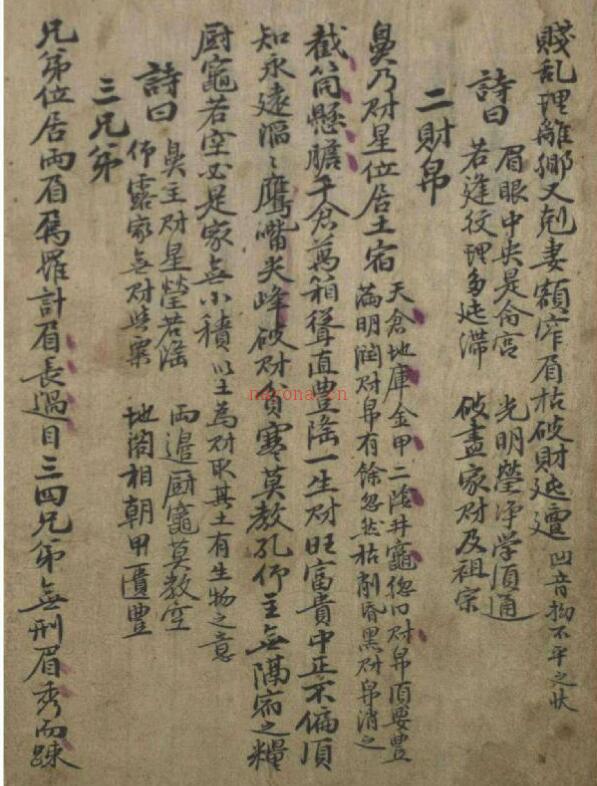 賤乱理離鄉又剋妻額窄眉枯破財迍邅 凹音拗不平之状
詩曰
眉眼中央是命宫 光明瑩净学須通
若逢紋理多迍滯 破盡家财及祖宗
二財帛
鼻乃财星位居土宿
天倉地庫金甲二陰井竈總曰财帛須要豊
滿明润财帛有餘忽然枯削昏黑财帛消乏
截筒懸膽千倉萬箱聳直豊隆一生财旺富貴中正不偏須
知永遠滔々鷹嘴尖峰破财貧寒莫教孔仰主無隔宿之糧
厨竈若空必是家無小積 以土為财取其土有生物之意
詩曰
鼻主财星瑩若隆 兩邉厨竈莫教空
仰露家無财与粟 地阁相朝甲匱豊
三兄弟
兄弟位居两眉属羅計眉長過目三四兄弟無刑眉秀而踈
nayona.cn